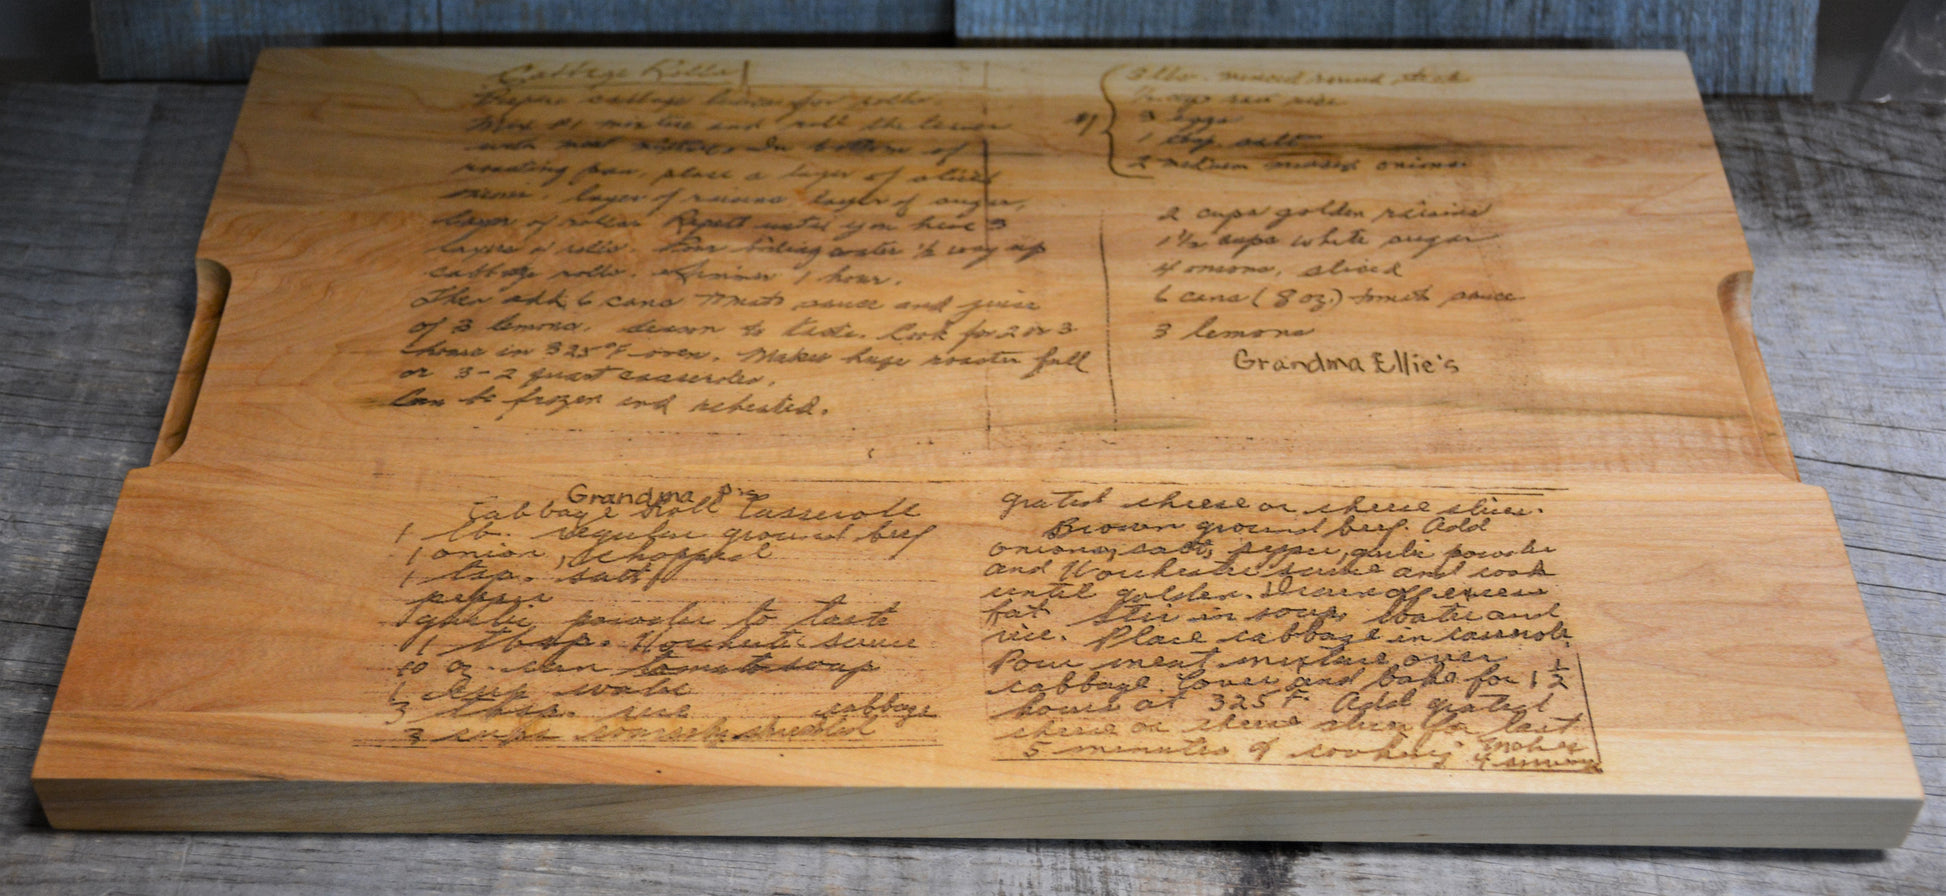 Cabbage Rolls
Prepare cabbage leaves for rolls.
Mix #1 mixture and roll the leaves
with meat mixture. In bottom of
roasting pan, place a layer of sliced
onions, layer of raisins, layer of sugar,
layer of rolls. Repeat until you have 3
layers of rolls. Pour boiling water 1/2 way up
cabbage rolls. Simmer 1 hour.
Then add 6 cans tomato sauce and juice
of 3 lemons. Season to taste. Cook for 2 or 3
hours in 325°F oven. Makes huge roaster full
or 3-2 quart casseroles.
Can be frozen and reheated.
#1
3 lbs. minced round steak
raw rice
3 eggs
1 tbsp salt
2 medium minced onions
2 cups golden raisins
1 1/2 cups white sugar
4 onions, sliced
6 cans (8 oz.) tomato sauce
3 lemons
Grandma Ellie's
Grandma P's
Cabbage Roll Casserole
1 lb. regular ground beef
1 onion, chopped
1 tsp. salt
pepper
garlic powder to taste
1 tbsp. Worchester sauce
10 oz. can tomato soup
1 cup water
3 tbsp. rice
3 cups coarsely shredded cabbage
grated cheese or cheese slices.
Brown ground beef. Add
onions, salt, pepper, garlic powder
and Worchester sauce and cook
until golden. Drain off excess
fat. Stir in soup, water and
rice. Place cabbage in casserole.
Pour meat mixture over
cabbage. Cover and bake for 1 1/2
hours at 325 F. Add grated
cheese or cheese slices for last
5 minutes of cooking. Makes
4 servings